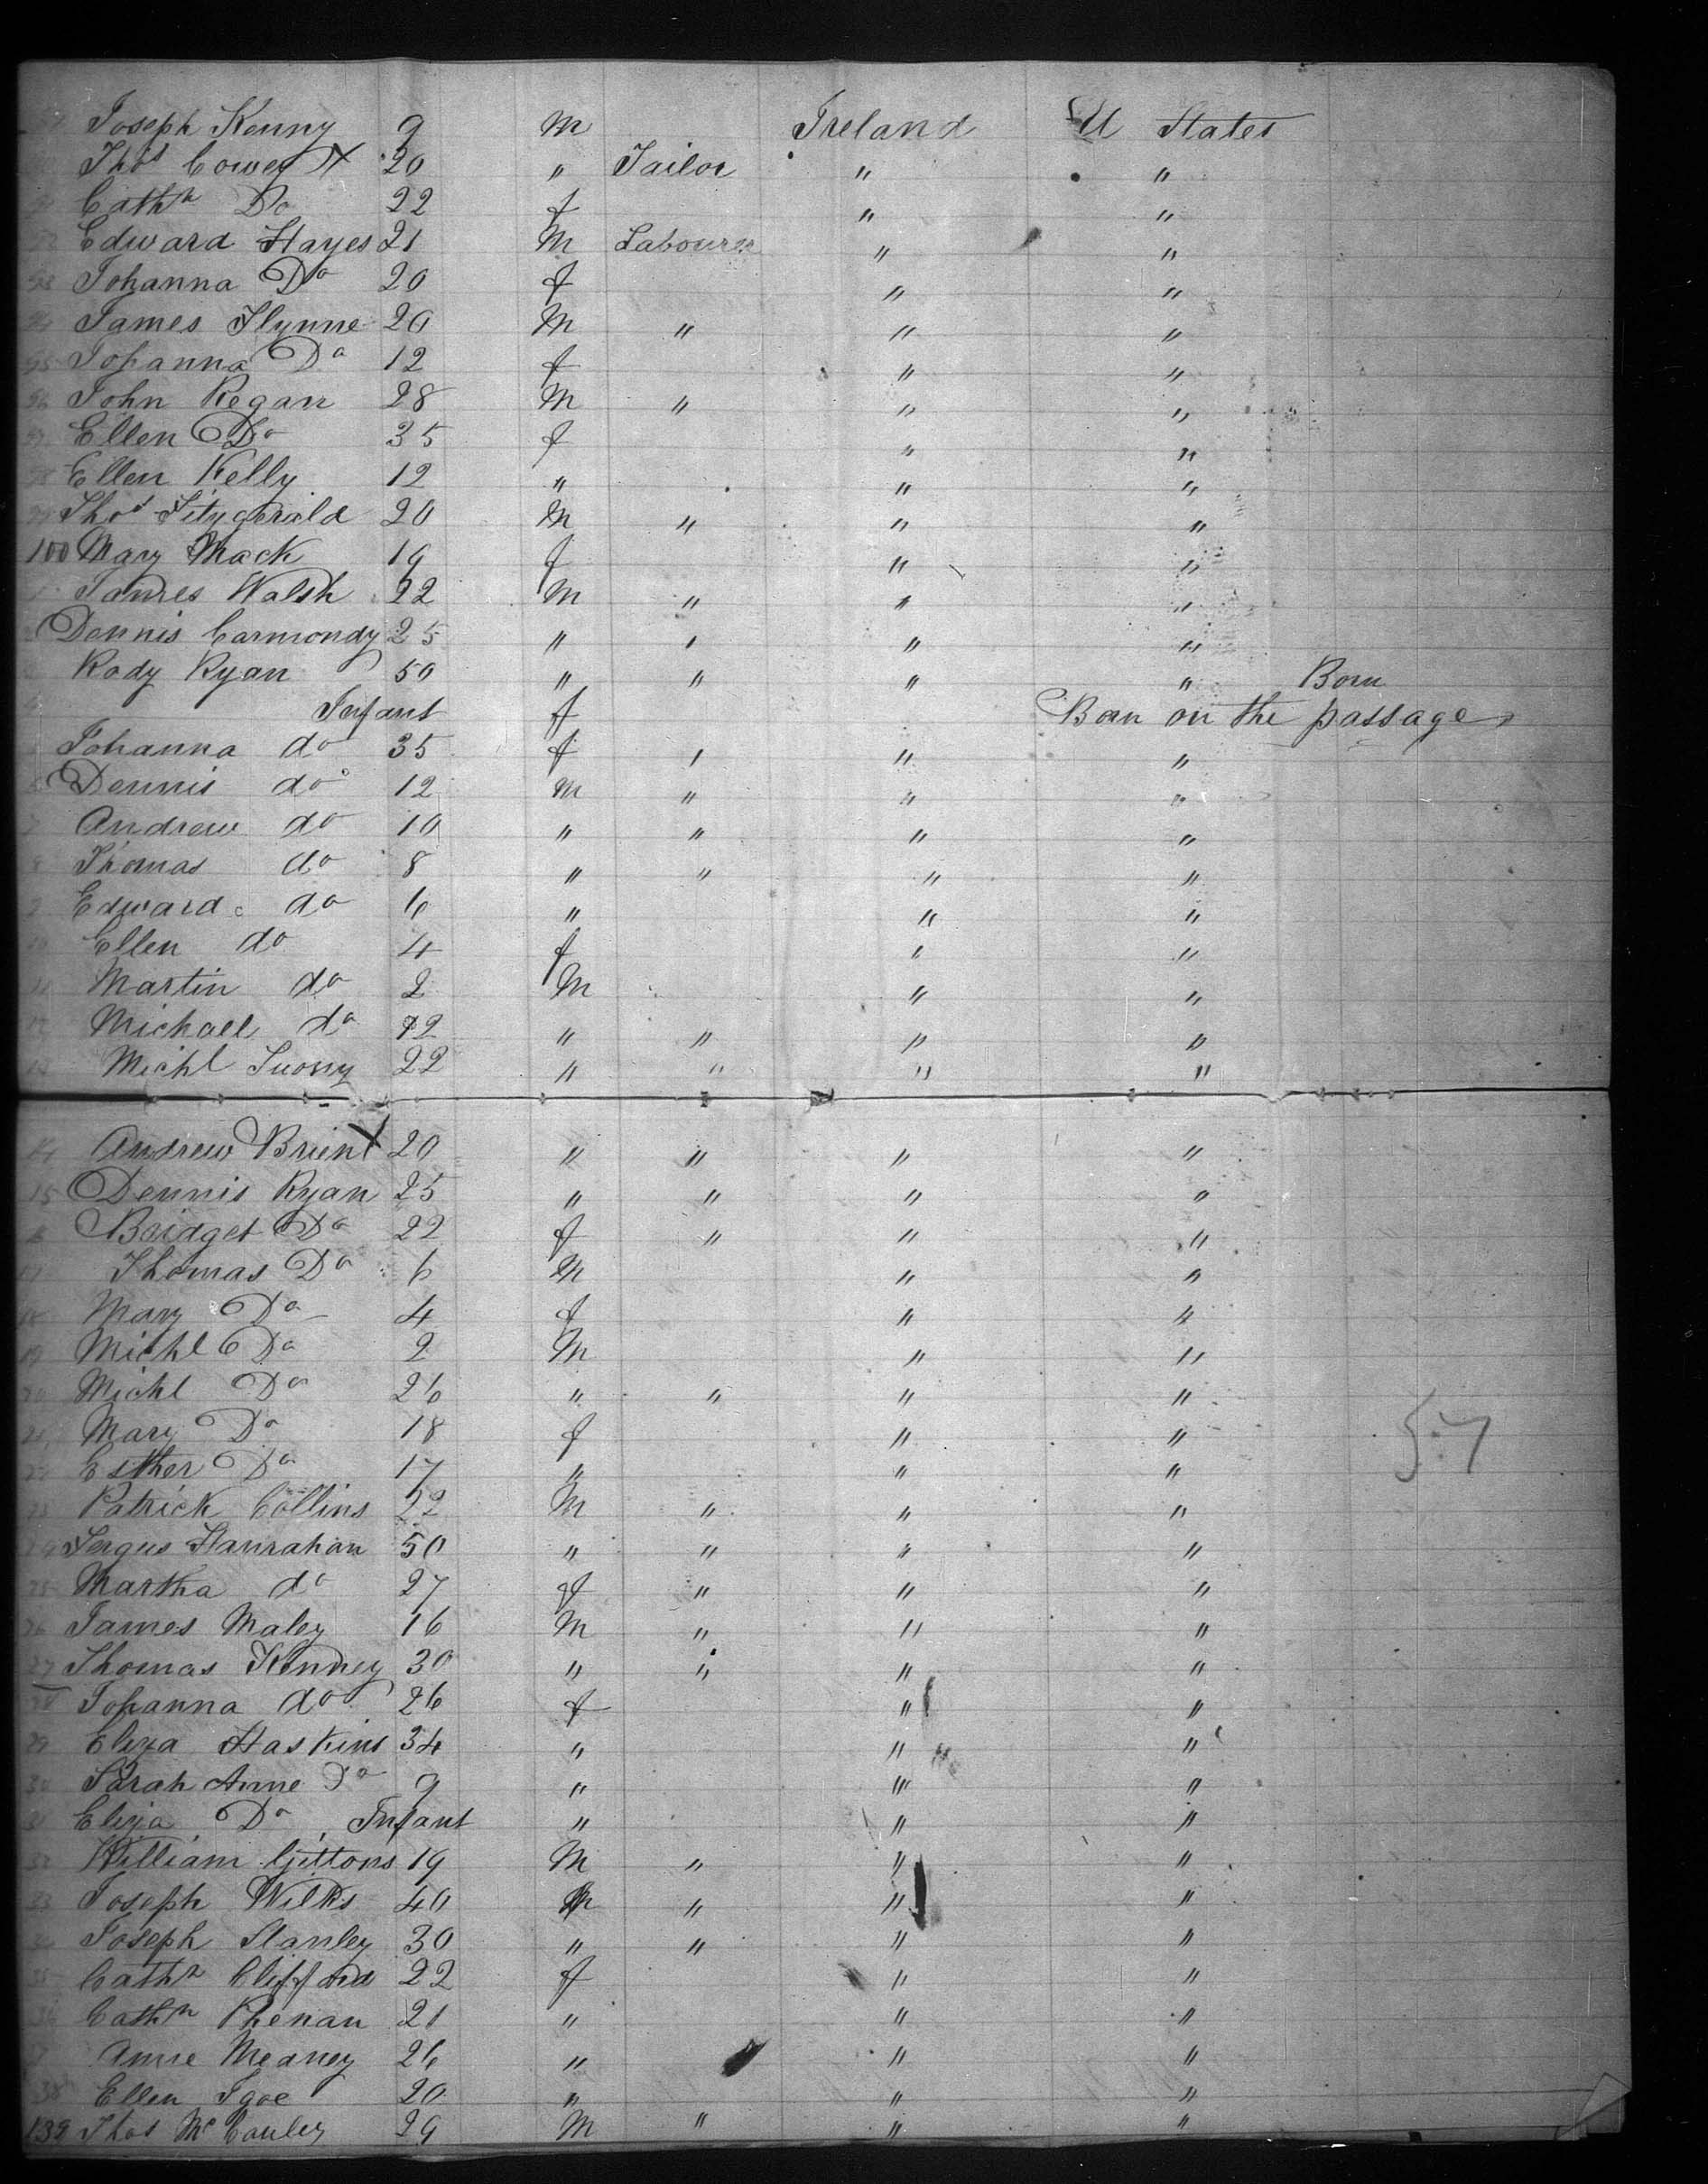 Joseph Kenny 9 m Ireland U States
Thos Cowey X 20 " Tailor " "
Cathn Do 22 f " "
Edward Hayes 21 M Labourer " "
93 Johanna Do 20 f " "
94 James Flynne 20 M " " "
95 Johanna Do 12 f " "
96 John Regan 28 M " " "
97 Ellen Do 35 f " "
98 Ellen Kelly 12 " " "
99 Thos Fitzgerald 20 M " " "
100 Mary Mack 19 f " "
James Walsh 22 M " " "
Dennis Carmondy 25 " " " "
Rody Ryan 50 " " " " Born
Infant f Born on the passage
Johanna do 35 f " " "
Dennis do 12 m " " "
7 Andrew do 10 " " " "
8 Thomas do 8 " " " "
9 Edward do 6 " " "
10 Ellen do 4 f " "
11 Martin do 2 M " "
12 Michael do 12 " " " "
13 Michl 22 " " " "
14 Andrew Brien X 20 " " " "
15 Dennis Ryan 25 " " " "
16 Bridget Do 22 f " " "
17 Thomas Do 6 M " "
18 Mary Do 4 f " "
19 Michl Do 2 M " "
20 Michl Do 26 " " " "
21 Mary Do 18 f " "
22 Esther Do 17 " " "
23 Patrick Collins 22 M " " "
24 Fergus Hanrahan 50 " " " "
25 Martha do 27 f " " "
26 James Maley 16 M " " "
27 Thomas Kinney 30 " " " "
28 Johanna do 26 f " "
29 Eliza Haskins 34 " " "
30 Sarah Anne Do 9 " " "
31 Eliza Do Infant " " "
32 William Gittons 19 M " " "
33 Joseph Wilks 40 M " " "
34 Joseph Stanley 30 " " " "
35 Cathn Clifford 22 f " "
36 Cathn Phenan 21 " " "
7 Anne Meaney 26 " " "
38 Ellen Igoe 20 " " "
139 Thos McCauley 29 M " " "